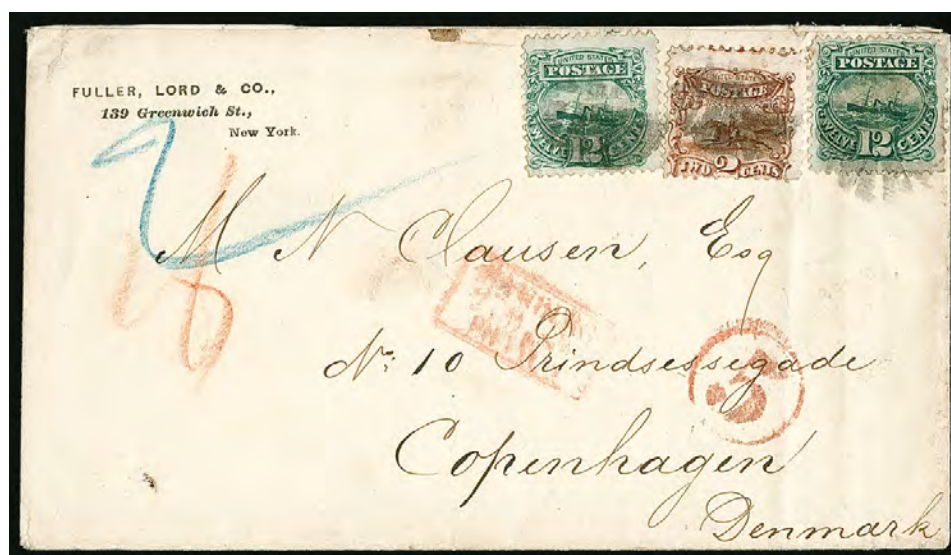 FULLER, LORD & CO.,
139 Greenwich St.,
New York.
UNITED STATES
POSTAGE
TWELVE 12 CENTS
UNITED STATES
POSTAGE
TWO 2 CENTS
UNITED STATES
POSTAGE
TWELVE 12 CENTS
M N Clausen, Esq
No: 10 Prindsessegade
Copenhagen
Denmark
3